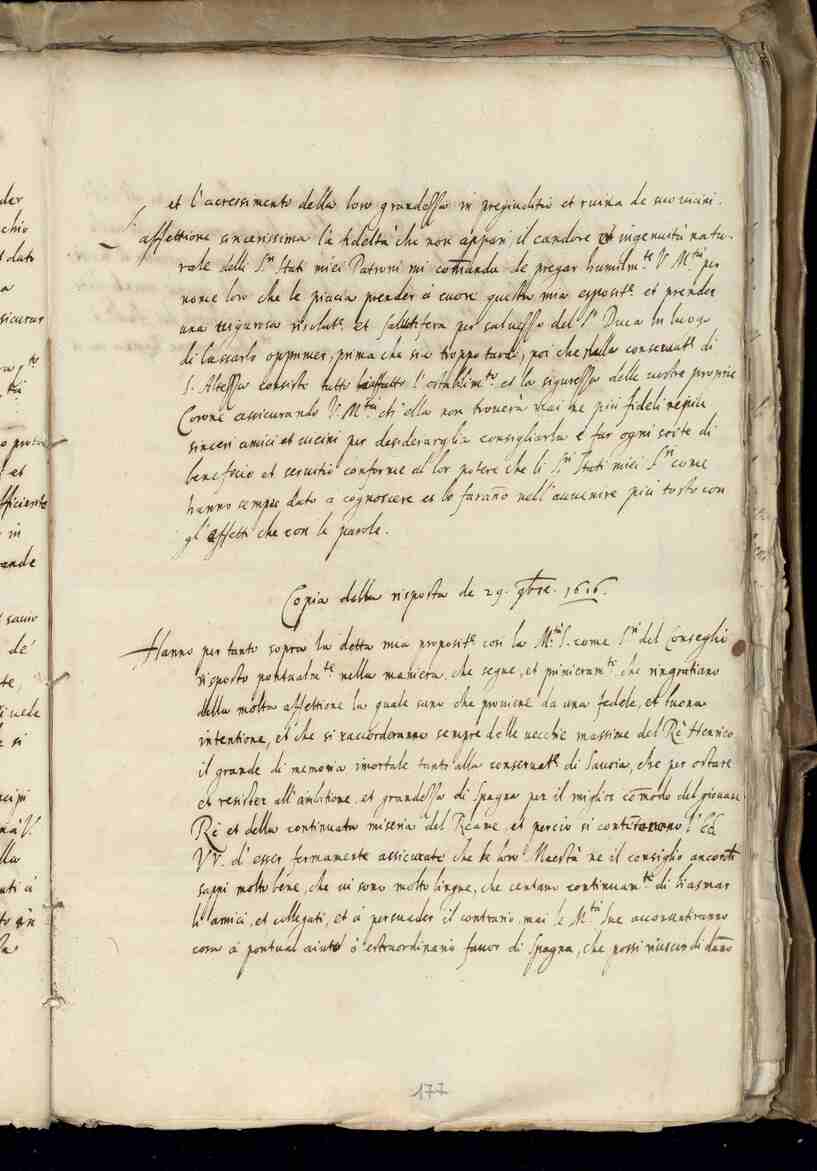 et l'acressimento della loro grandessa in pregiuditio et ruina de suoi uicini.
L'affettione sincerissima la fideltà che non appari il candore et ingenuità natu-
rale delli S.ri Stati miei Patroni mi comanda de pregar humilm.te V. M.tà per
nome loro che le piacia prender à cuore questa mia esposit.e et prender
una uigurosa risolut.e et salutifera per saluesso del S.r Duca in luogo
di lassarlo opprimer, prima che sia troppo tardi, poi che nella conseruat.e di
S. Altessa consiste tutto l'establim.to et la siguressa delle uostre proprie
Corone assicurando V. M.tà ch'ella non trouerà mai ne piu fideli ne piu
sinceri amici et uicini per desiderargli consigliarla e far ogni sorte di
beneficio et seruitio conforme al lor potere che li S.ri Stati miei S.ri come
hanno sempre dato a cognoscere et lo farano nell'auuenire piu tosto con
gl'effetti che con le parole.
Copia della risposta de 29. 9bre. 1616.
Hanno per tanto sopra la detta mia proposit.e cosi la M.tà S. come S.ri del Conseglio
risposto pontualm.te nella maniera che segue, et primieram.te che ringratiano
della molta affettione la quale sano che prouiene da una fedele, et buona
intentione, et che si raccorderanno sempre delle uecchie massime del Rè Henrico
il grande di memoria imortale tanto alla conseruat.e di Sauoia, che per ostare
et resister all'ambitione et grandessa di Spagna per il miglior comodo del giouane
Rè et della continuata miseria del Reame, et percio si contentarono l'EE.
VV. d'esser fermamente assicurate che le loro Maestà ne il consiglio
sapri molto bene, che ui sono molte lingue, che centano continuam.te di biasmar
li amici, et collegati, et à persuader il contrario, mai le M.tà Sue acconsentiranno
cosa à pontual aiuto ò estraordinario fauor di Spagna, che possi riuscir di dano
177